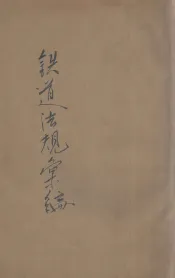 鉄道法規彙編